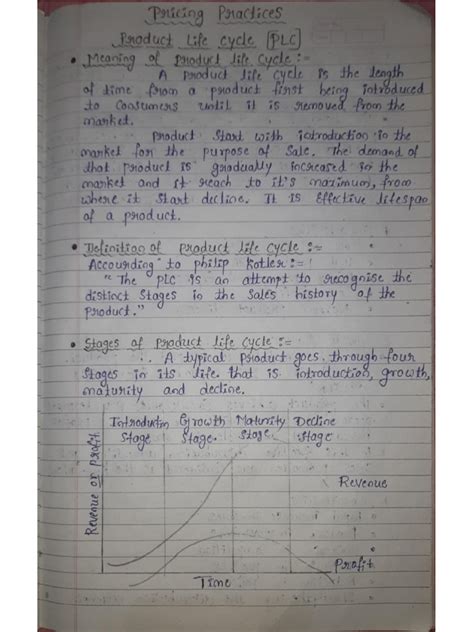 Pricing Practices
Product Life Cycle [PLC]
• Meaning of Product Life Cycle :-
A product life cycle is the length
of time from a product first being introduced
to consumers until it is removed from the
market.
Product start with introduction in the
market for the purpose of sale. The demand of
that product is gradually increased in the
market and it reach to it's maximum, from
where it start decline. It is effective lifespan
of a product.
• Definition of product life cycle :-
Accourding to philip kotler :-
"The PLC is an attempt to recognise the
distinct stages in the sales history of the
product."
• Stages of product life cycle :-
A typical product goes through four
stages in its life that is introduction, growth,
maturity and decline.
Introduction Growth Maturity Decline
Stage Stage Stage Stage
Revenue or profit
Revenue
Profit
Time